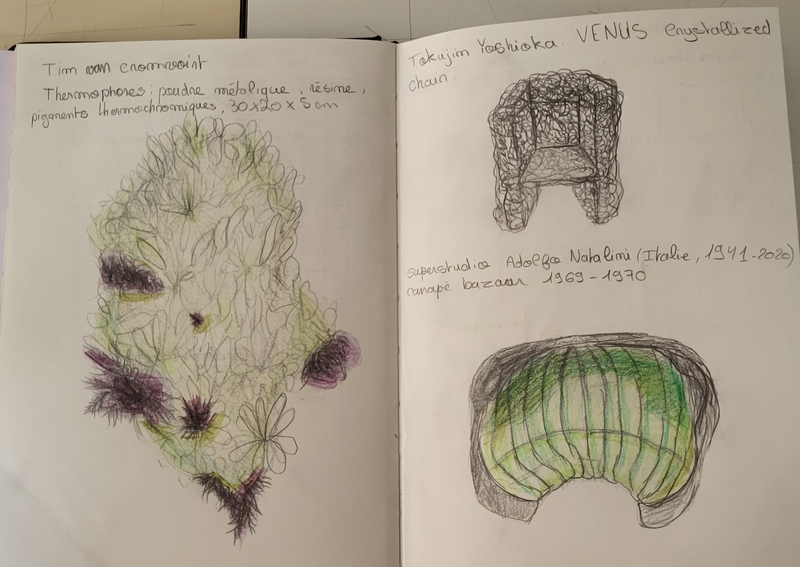 Tim van cromvoirt
Thermophores : poudre métalique, résine,
pigments thermochromiques, 30x20x5cm
Tokujin Yoshioka. VENUS Crystallized
chair.
superstudio Adolfo Natalini (Italie, 1941-2020)
canapé bazaar 1969-1970